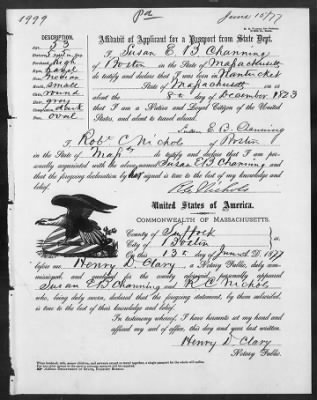 1999 Pd June 15/77
DESCRIPTION. Affidavit of Applicant for a Passport from State Dept.
Age: 53
I Susan E B Channing
of Boston in the State of Massachusetts
do testify and declare that I was born in Nantucket
State of Massachusetts on
about the 8th day of December 1823
that I am a Native and Loyal Citizen of the United
States, and about to travel abroad.
high
hazel
small
round
gray
oval
Susan E. B. Channing
I Robt C Nichols of Boston
in the State of Mass do testify and declare that I am per-
sonally acquainted with the above named Susan E B Channing and
that the foregoing declaration by her signed is true to the best of my knowledge and
belief.
R C Nichols
United States of America.
COMMONWEALTH OF MASSACHUSETTS.
County of Suffolk
City of Boston
On this 13th day of June A.D. 1877
before me Henry D. Clary, a Notary Public, duly com-
missioned and qualified for the county aforesaid, personally appeared
Susan E B Channing and R. C. Nichols
who, being duly sworn, declared that the foregoing statement, by them subscribed,
is true to the best of their knowledge and belief.
In testimony whereof, I have hereunto set my hand and
affixed my seal of office, this day and year last written.
Henry D. Clary
Notary Public.